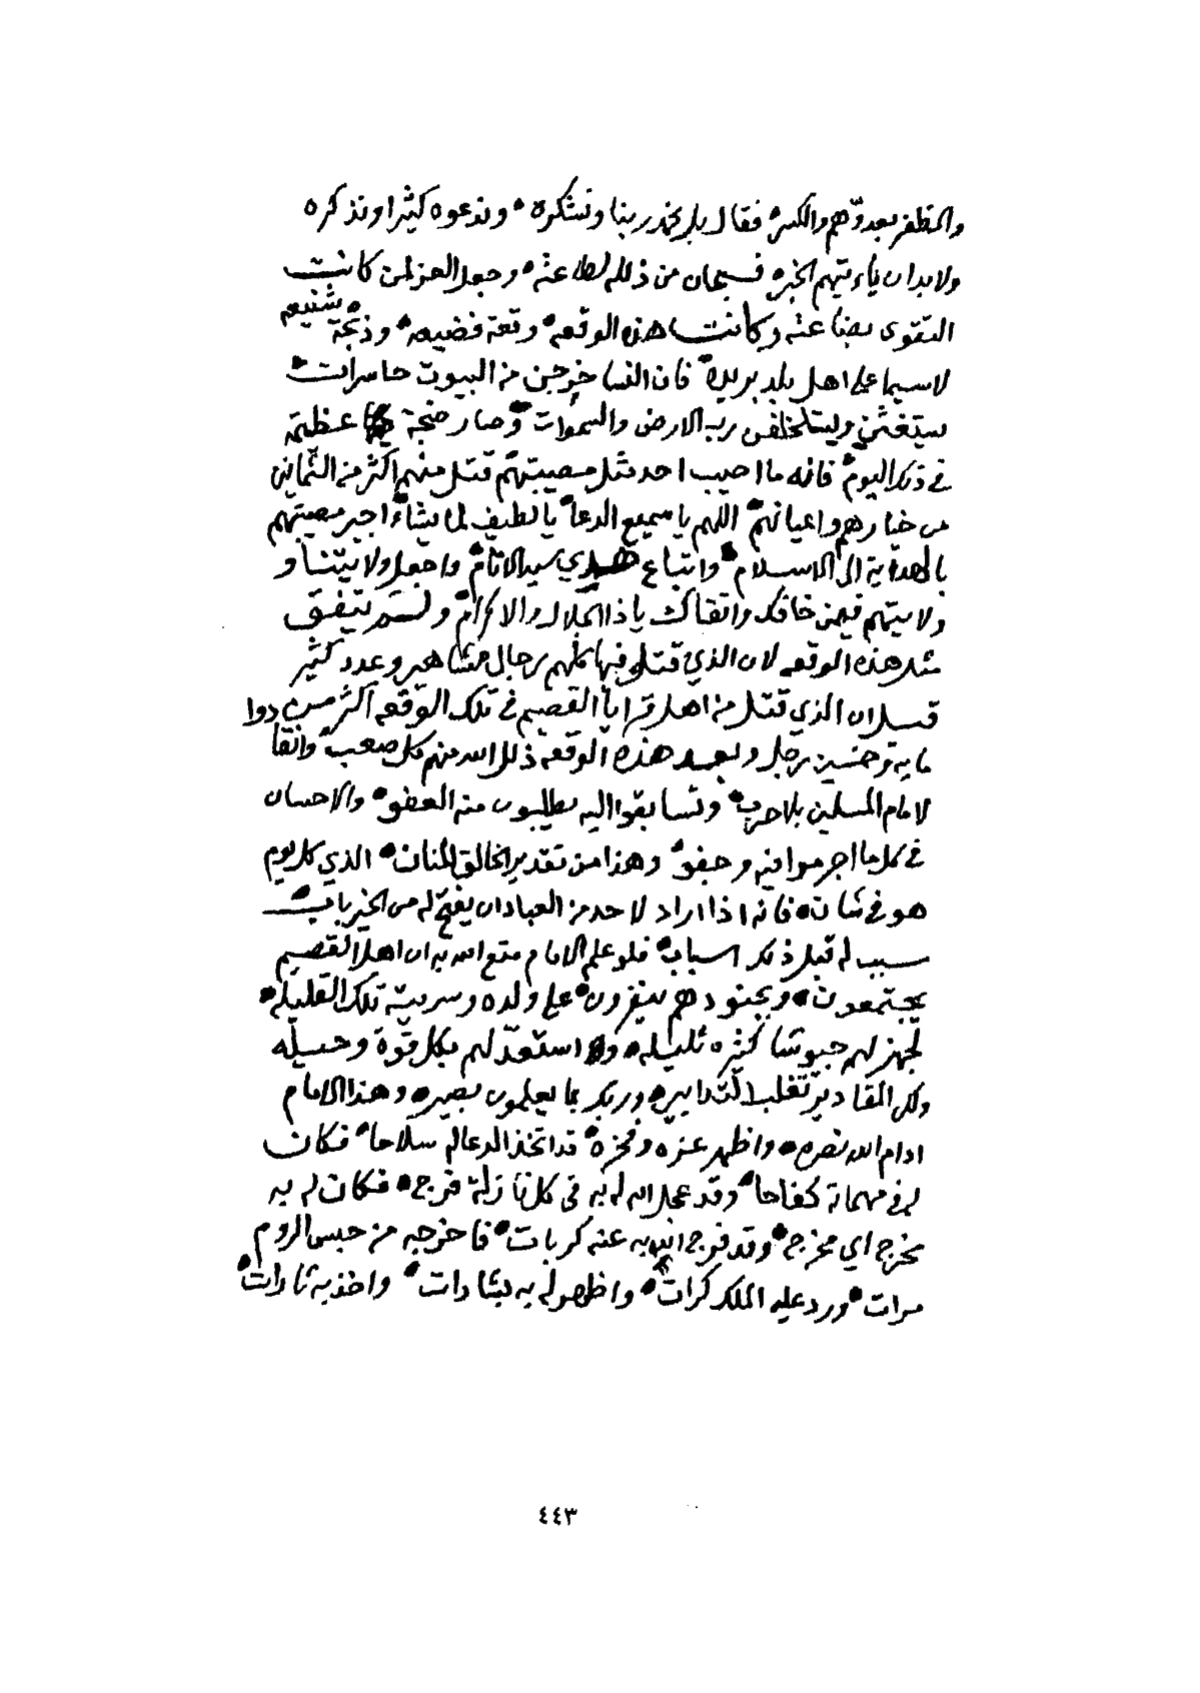 والمظفر بعدوهم والكسر فقال بل نحمد ربنا ونشكره ونذعوه كثيرا ونذكره
ولا بد ان ياءتيهم الخبر فسبحان من ذلل لطاعته وجعل العز لمن كانت
التقوى بضاعته وكانت هذه الوقعه وقعة فضيعه وذبحة شنيعه
لا سيما على اهل بلد بريدة فان النسا خرجن من البيوت حاسرات
يستغثن ويستلخلفن برب الارض والسموات وصار ضجة عظيمة
في ذلك اليوم فانه ما اصيب احد مثل مصيبتهم قتل منهم اكثر من الثماني
من خيارهم واعيانهم اللهم يا سميع الدعا يا لطيف لما يشاء اجبر مصيبتهم
بالهداية الى الاسلام واتباع هدي سيد الانام واجعل ولايتنا و
ولايتهم فيمن خافك واتقاك يا ذا الجلال والاكرام ولم يتفق
مثل هذه الوقعه لان الذي قتل فيها كلهم رجال مشاهير وعدد كثير
قيل ان الذي قتل من اهل قرايا القصيم في تلك الوقعه اكثر من
ماية وخمسين رجل وبعد هذه الوقعه ذلل الله منهم كل صعب وانقادوا
لامام المسلمين بلا حرب وتسابقوا اليه يطلبون منه العفو والاحسان
في كل ما اجرموا فيه وهذا من تقدير الخالق المنان الذي كل يوم
هو في شان فانه اذا اراد لاحد من العباد ان يفتح له من الخير باب
سبب له قبل ذلك اسباب فلو علم الامام متع الله به ان اهل القصيم
يجتمعون وبجنودهم ينفرون على ولده وسريته تلك القليله
لجهز لهم جيوشا كثيره ثقيله واستعد لهم بكل قوة وحيله
ولكن المقادير تغلب التدابير وربك بما يعلمون بصير وهذا الامام
ادام الله نصره واظهر عزه وفخره قد اتخذ الدعا له سلاحا فكان
له في مهماته كفاحا وقد عجل الله له به في كل نازلة فرج فكان له به
مخرج اي مخرج وقد فرج الله به عنه كربات فاخرجه من حبس الروم
مرات ورد عليه الملك كرات واظهر له به بشارات واخذ به ثارات
٤٤٣